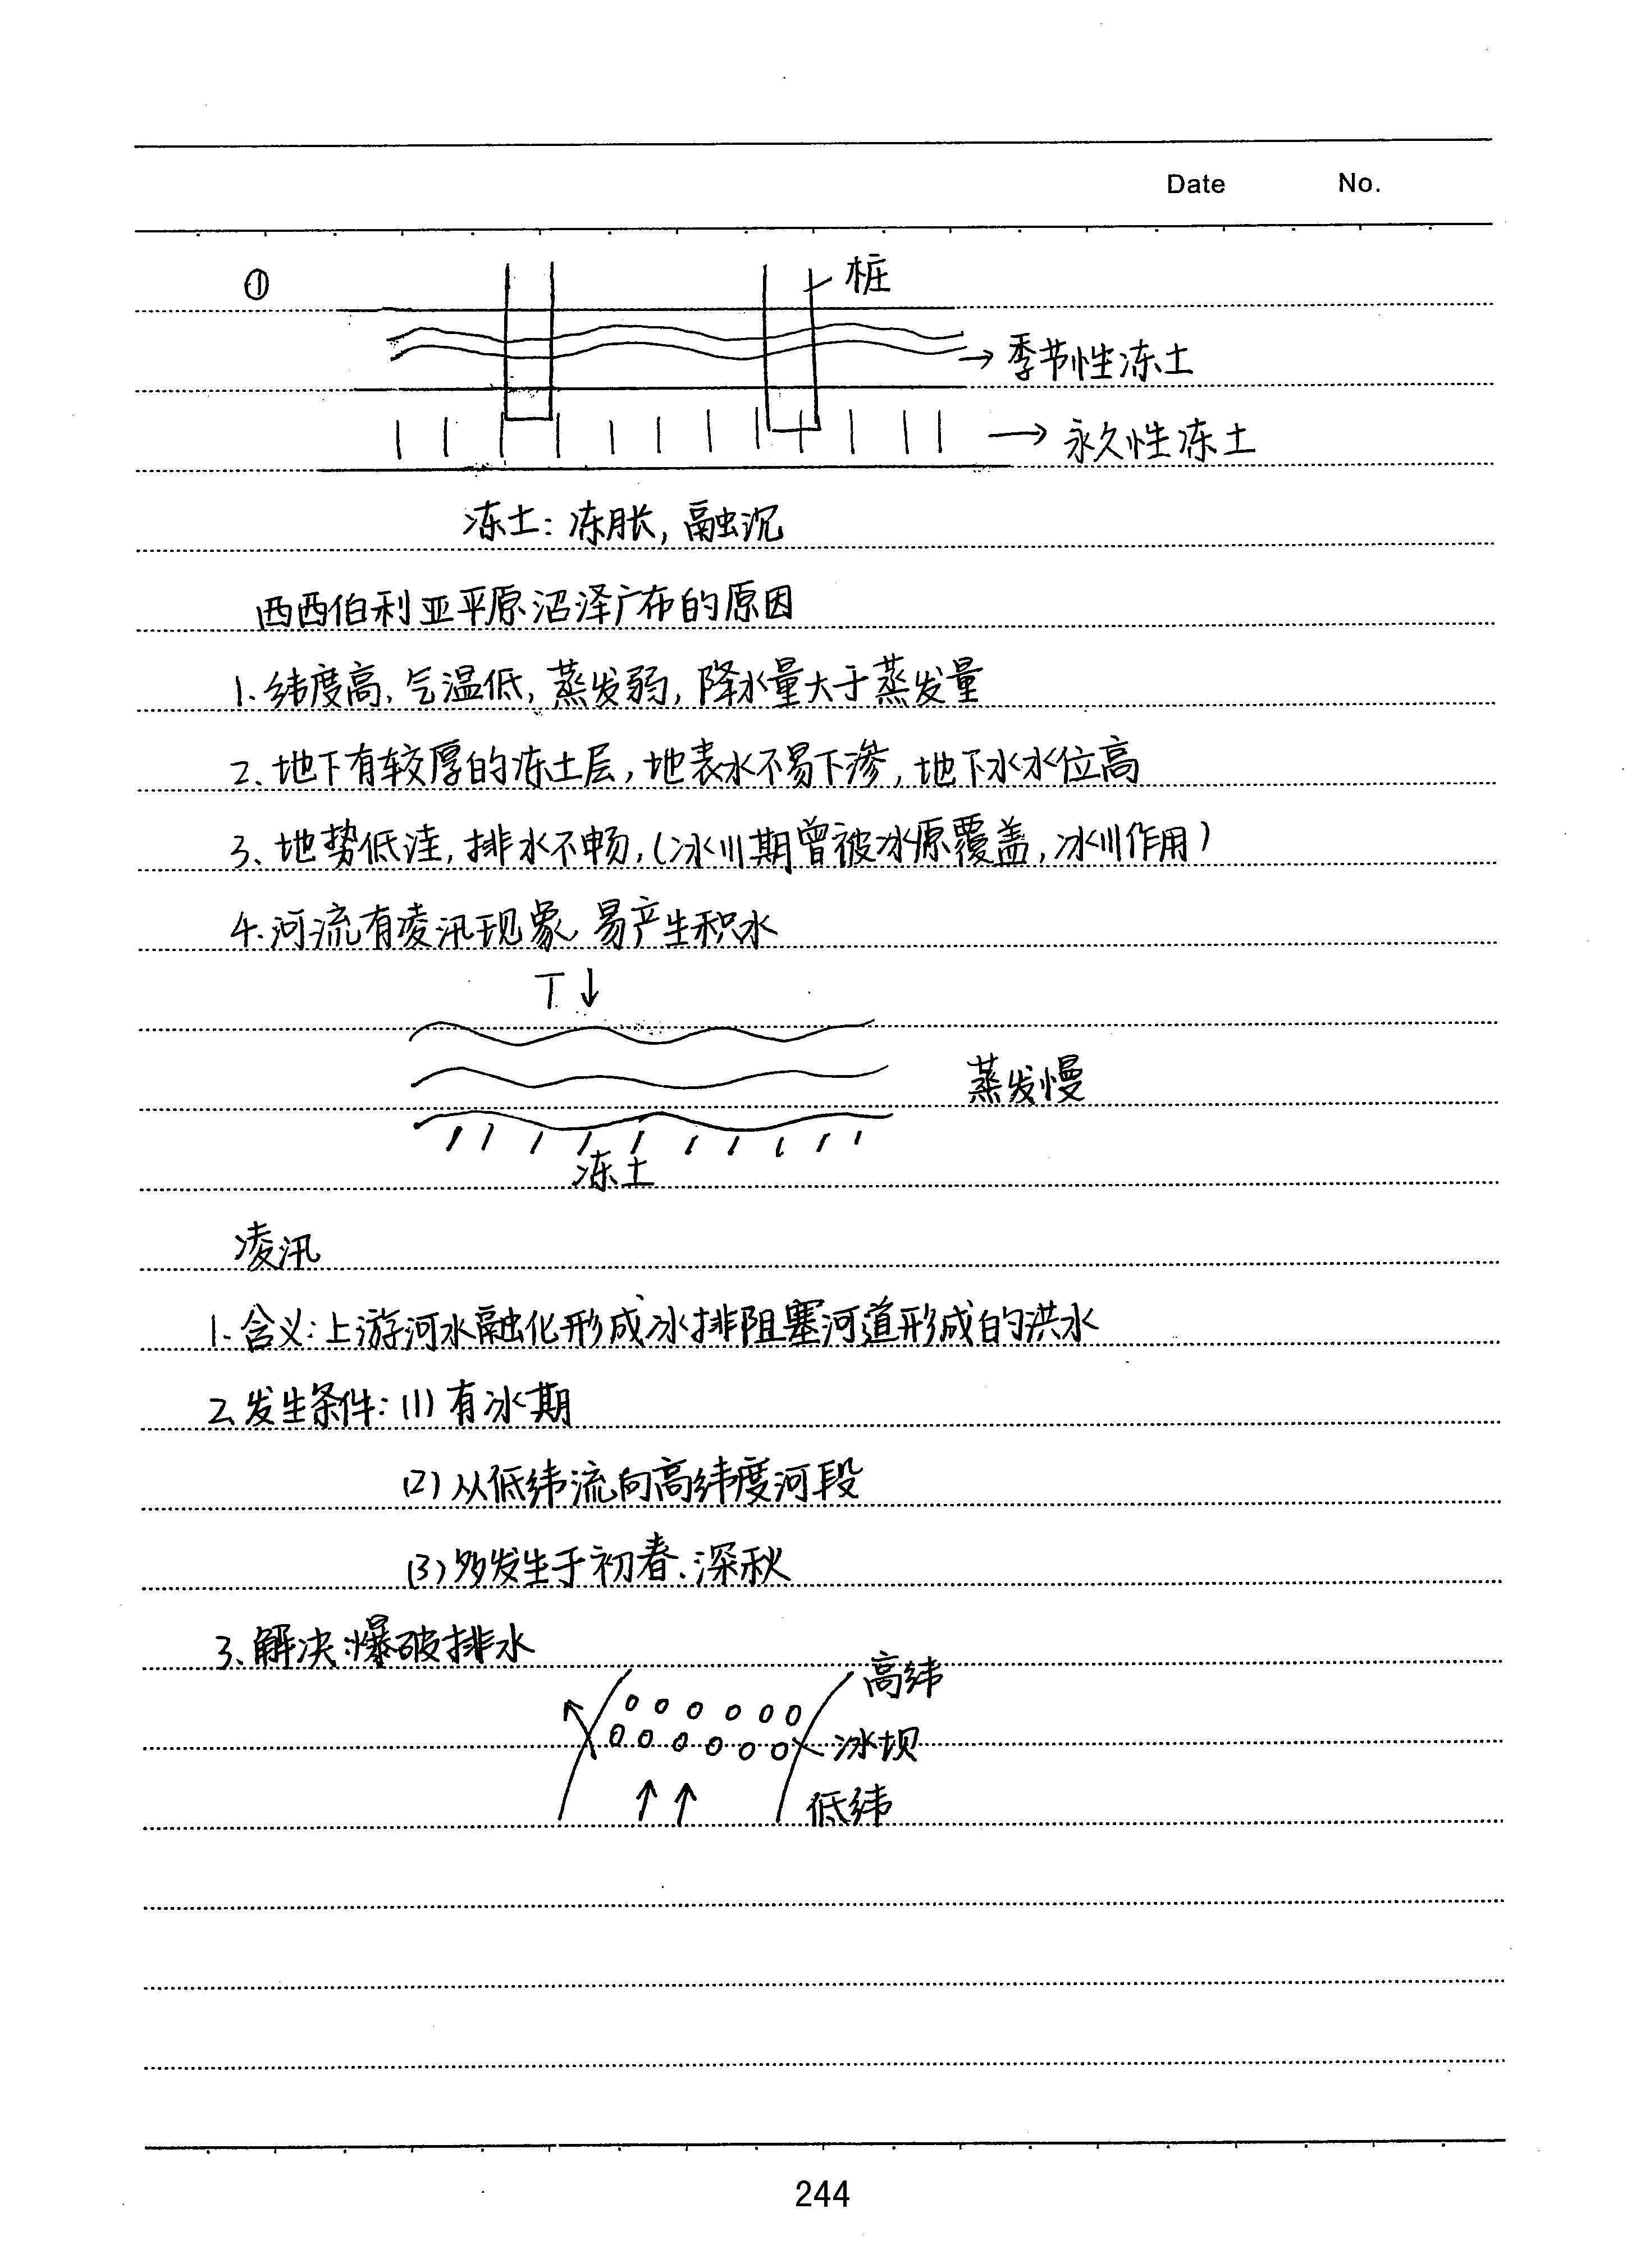 Date No.
① 桩
→季节性冻土
→永久性冻土
冻土:冻胀,融沉
西西伯利亚平原沼泽广布的原因
1、纬度高,气温低,蒸发弱,降水量大于蒸发量
2、地下有较厚的冻土层,地表水不易下渗,地下水水位高
3、地势低洼,排水不畅,(冰川期曾被冰原覆盖,冰川作用)
4.河流有凌汛现象,易产生积水
T↓
蒸发慢
冻土
凌汛
1、含义:上游河水融化形成冰排阻塞河道形成的洪水
2、发生条件:(1)有冰期
(2)从低纬流向高纬度河段
(3)多发生于初春、深秋
3、解决:爆破排水
高纬
冰坝
低纬
244